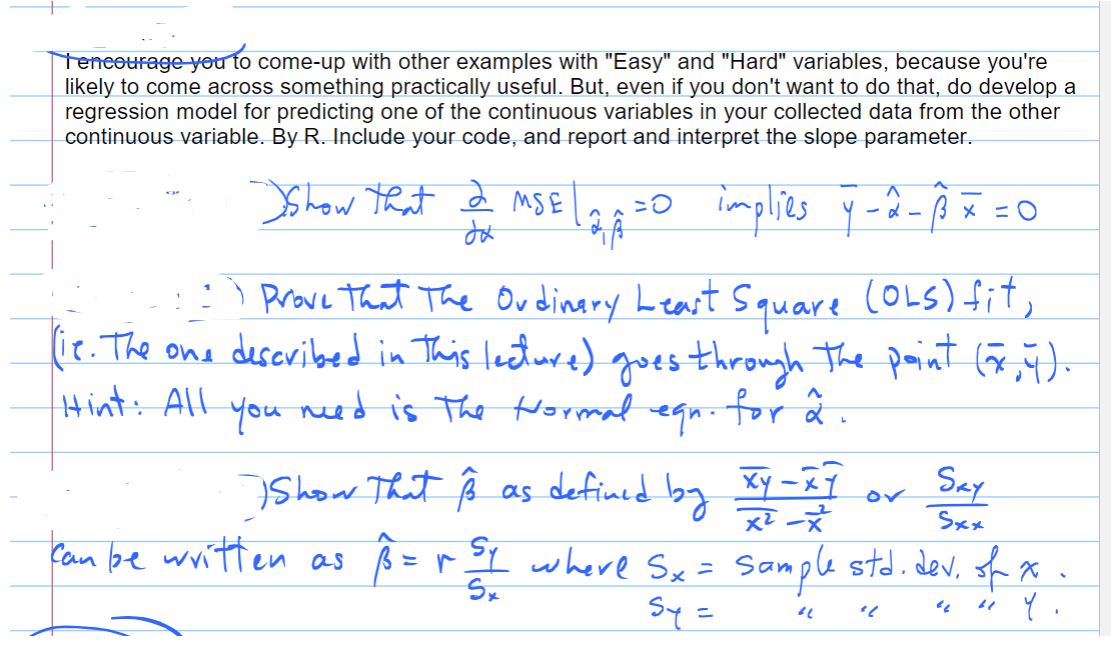 I encourage you to come-up with other examples with "Easy" and "Hard" variables, because you're
likely to come across something practically useful. But, even if you don't want to do that, do develop a
regression model for predicting one of the continuous variables in your collected data from the other
continuous variable. By R. Include your code, and report and interpret the slope parameter.
) Show that ∂/∂α MSE|α̂,β̂ = 0 implies ȳ - α̂ - β̂ x̄ = 0
) Prove that the Ordinary Least Square (OLS) fit,
(ie. The one described in this lecture) goes through the point (x̄, ȳ).
Hint: All you need is the Normal eqn. for α̂.
) Show that β̂ as defined by (x̅y̅ - x̄ ȳ)/(x̅²̅ - x̄²) or Sxy/Sxx
Can be written as β̂ = r Sy/Sx where Sx = Sample std. dev. of x.
Sy = " " " " y.